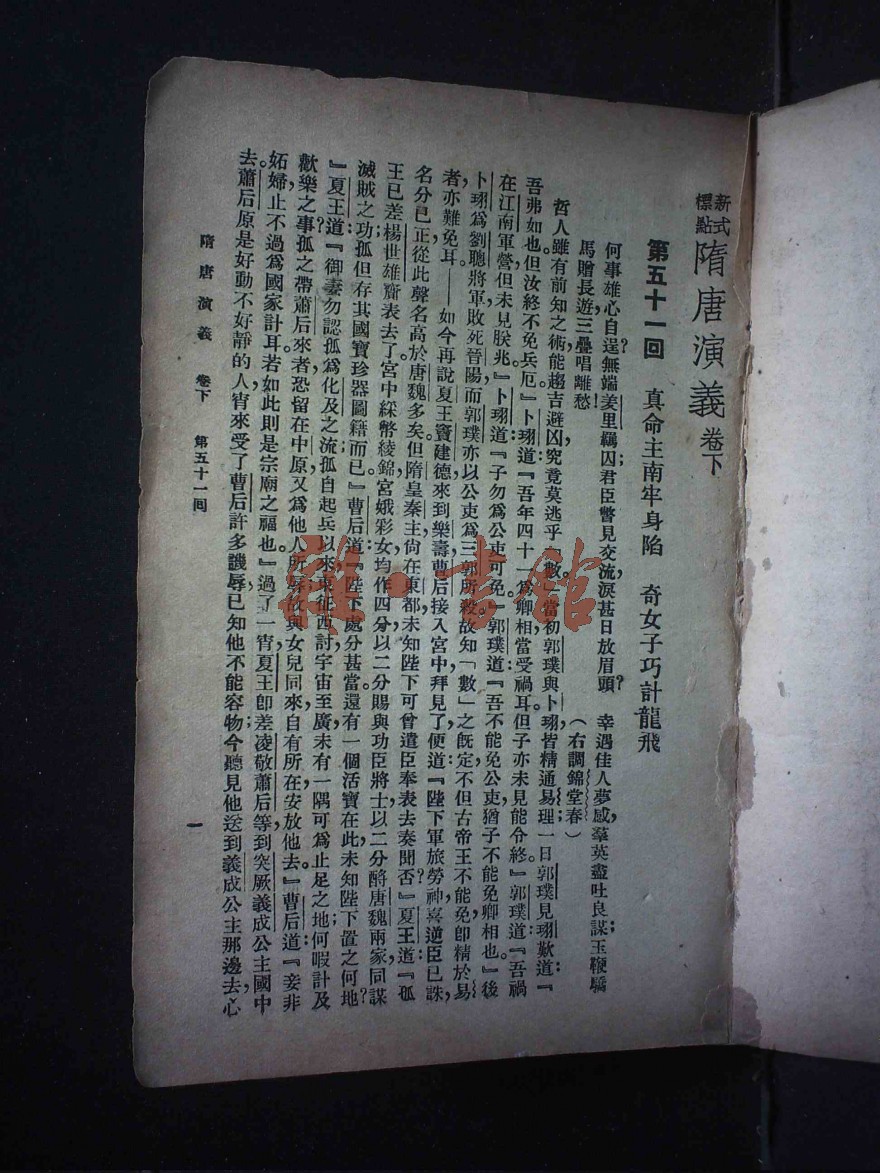 新式標點 隋唐演義 卷下
第五十一回　真命主南牢身陷　奇女子巧計龍飛
何事雄心自逞？無端羑里羈囚，君臣瞥見交流淚，甚日放眉頭？　幸遇佳人夢感，羣英盡吐良謀；玉鞭驕
馬贈長遊，三疊唱離愁！　（右調錦堂春）
哲人雖有前知之術，能趨吉避凶，究竟莫逃乎數。當初郭璞與卜珝，皆精通易理；一日郭璞見珝歎道：『
吾弗如也，但汝終不免兵厄。』卜珝道：『吾年四十一，爲卿相，當受禍耳。但子亦未見能令終。』郭璞道：『吾禍
在江南軍營，但未見朕兆。』卜珝道：『子勿爲公吏可免。』郭璞道：『吾不能免公吏，猶子不能免卿相也。』後
卜珝爲劉聰將軍，敗死晉陽；而郭璞亦以公吏，爲三郭所殺。故知「數」之既定，不但古帝王不能免，卽精於易
者亦難免耳——如今再說夏王竇建德來到樂壽，曹后接入宮中，拜見了，便道：『陛下軍旅勞神，喜逆臣已誅，
名分已正，從此聲名高於唐魏多矣。但隋皇秦主，尙在東都，未知陛下可曾遣臣奉表去奏聞否？』夏王道：『孤
王已差楊世雄齎表去了。宮中綵幣綾錦，宮娥彩女，均作四分，以二分賜與功臣將士，以二分酹唐魏兩家同謀
滅賊之功，孤但存其國寶珍器圖籍而已。』曹后道：『陛下處分甚當，還有一個活寶在此，未知陛下置之何地？
』夏王道：『御妻勿認孤爲化及之流，孤自起兵以來，東征西討，宇宙至廣，未有一隅可爲止足之地；何暇計及
歡樂之事？孤之帶蕭后來者，恐留在中原，又爲他人所辱，故與女兒同來，自有所在安放他去。』曹后道：『妾非
妬婦，止不過爲國家計耳，若如此則是宗廟之福也。』過了一宵，夏王卽差凌敬蕭后等到突厥義成公主國中
去。蕭后原是好動不好靜的人，宵來受了曹后許多譏辱，已知他不能容物；今聽見他送到義成公主那邊去，心
隋唐演義　卷下　第五十一回　一
雜·書館